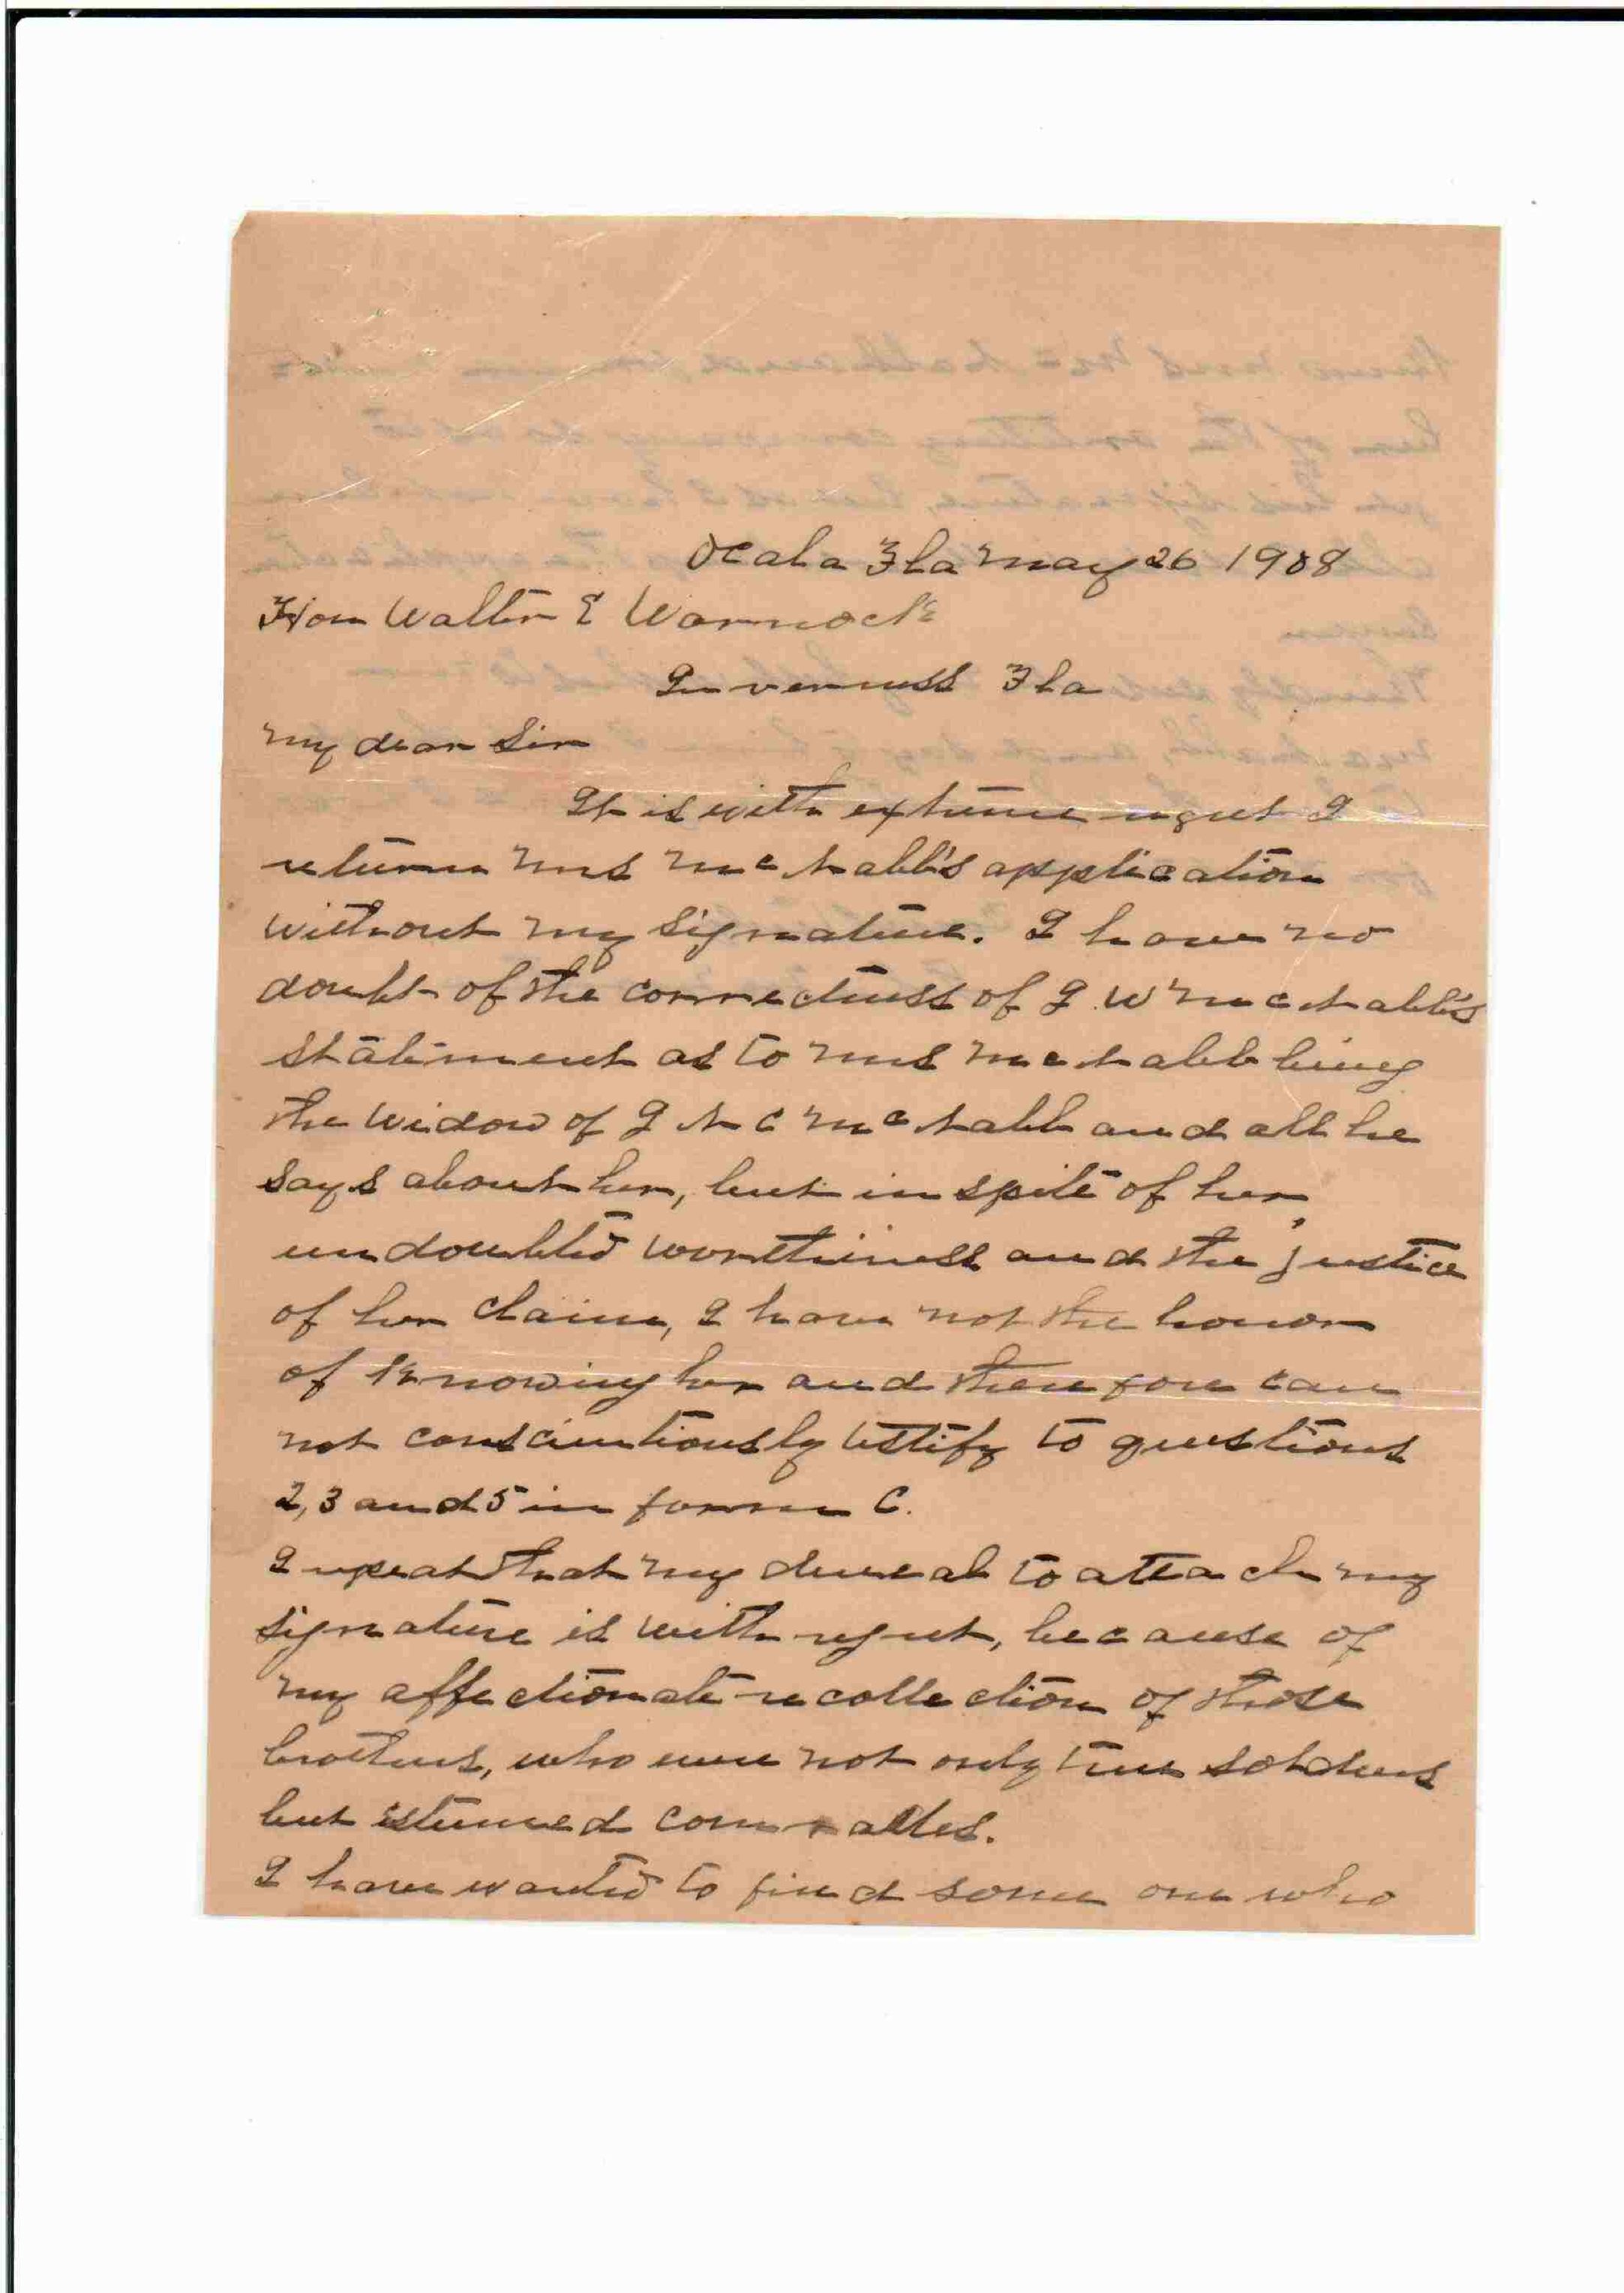 Ocala Fla May 26 1908
Hon Walter E Warnock
Inverness Fla
My dear Sir
It is with extreme regret I
return Mrs McNabb's application
without my signature. I have no
doubt of the correctness of J. W McNabb's
statement as to Mrs McNabb being
the widow of J N C McNabb and all he
says about her, but in spite of her
undoubted worthiness and the justice
of her claim, I have not the honor
of knowing her and therefore can
not conscientiously testify to questions
2, 3 and 5 in form C.
I repeat that my denial to attach my
signature is with regret, because of
my affectionate recollection of those
brothers, who were not only true soldiers
but esteemed comrades.
I have wanted to find some one who